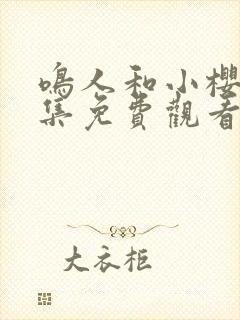 鳴人和小櫻
集免費觀看
大衣柜